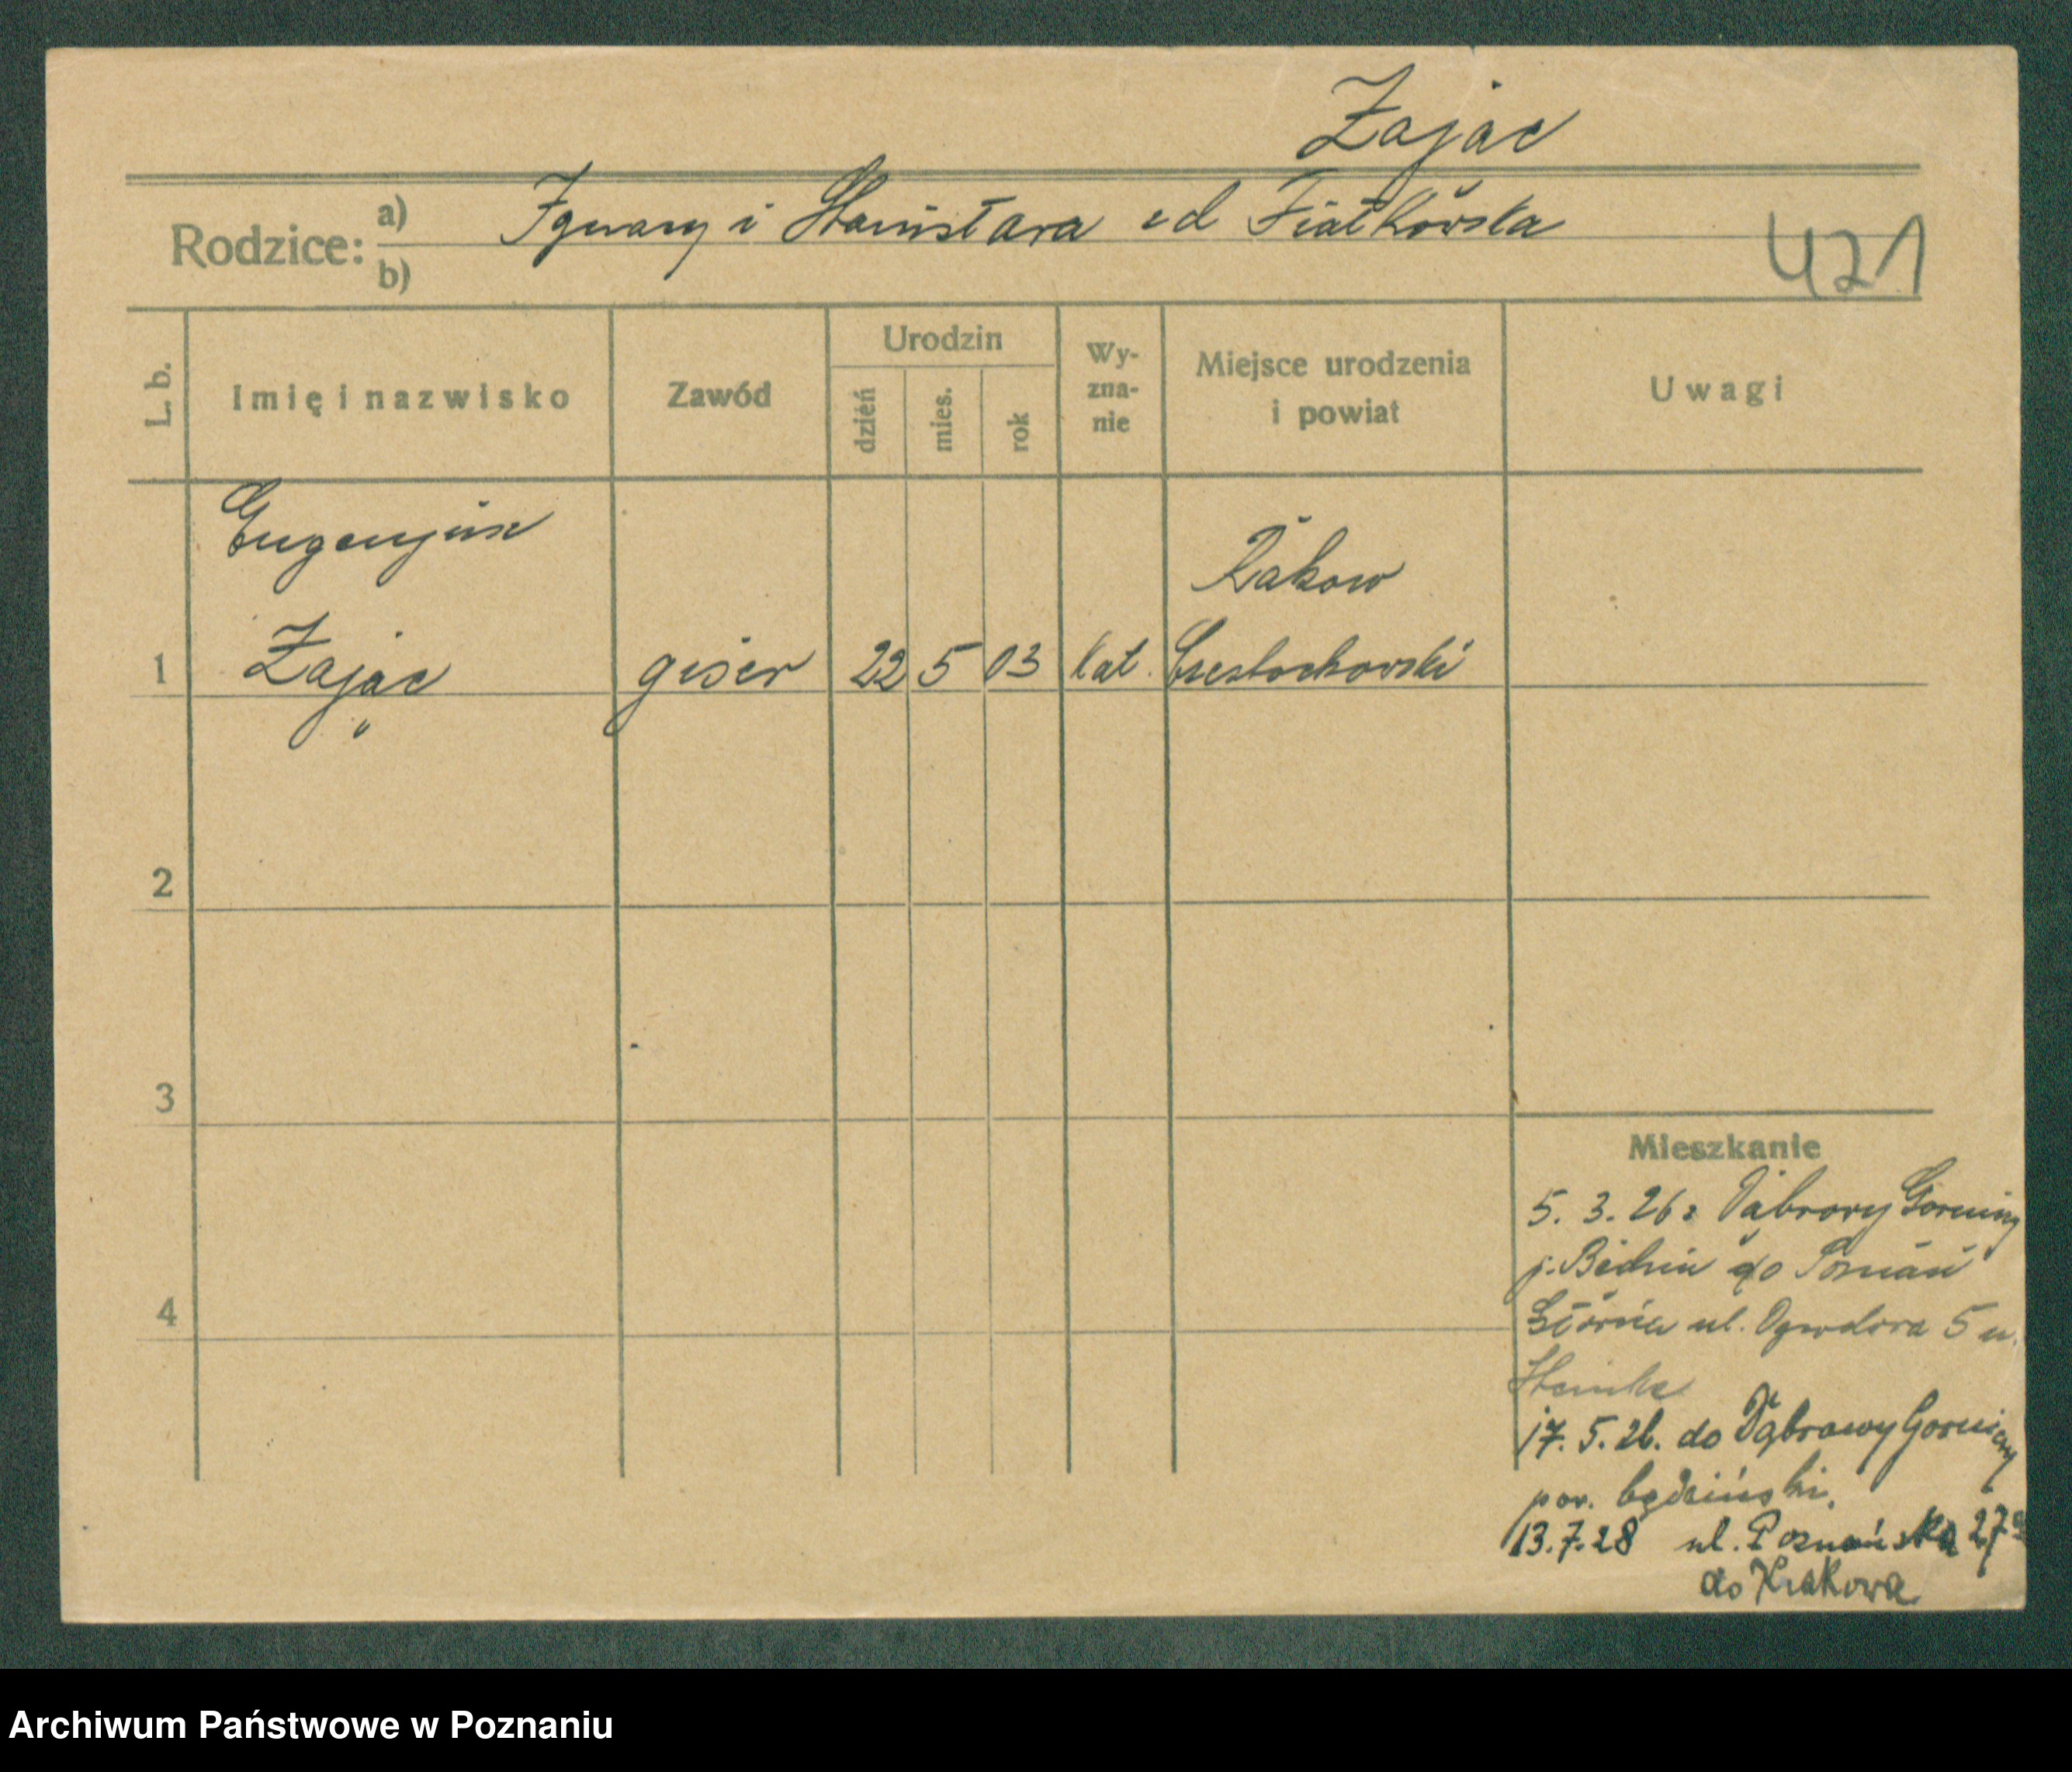 Zając
Rodzice: a) Ignacy i Stanisława zd Fiałkowska
b)
421
L. b. Imię i nazwisko Zawód Urodzin dzień mies. rok Wyznanie Miejsce urodzenia i powiat Uwagi
Eugenjusz
Rakow
1 Zając giser 22 5 03 kat. Czestochowski
2
3
Mieszkanie
5. 3. 26 z Dąbrowy Gorniczy
p. Bedzin do Poznań
4
Główna ul. Ogrodowa 5 u.
17. 5. 26. do Dąbrowy Gorniczy
pow. będziński.
13.7.28 ul. Poznańska 27
do Krakowa
Archiwum Państwowe w Poznaniu